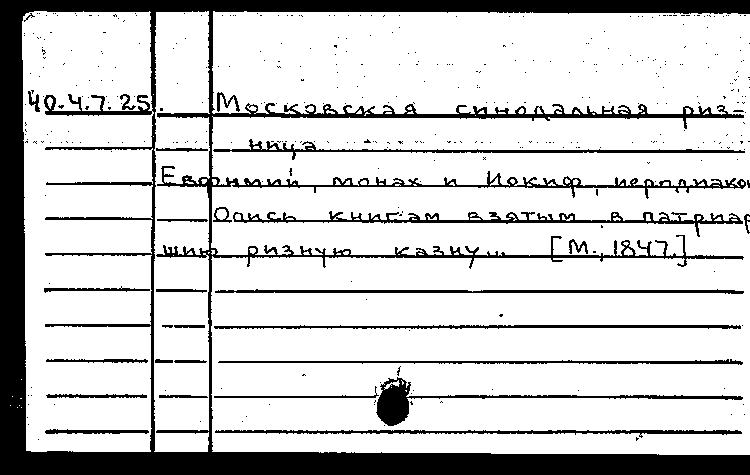 40.4.7.25. Московская синодальная риз-
ница
Евфимий, монах и Иокиф, иеродиакон
Опись книгам взятым в патриар
шию ризную казну... [М., 1847.]